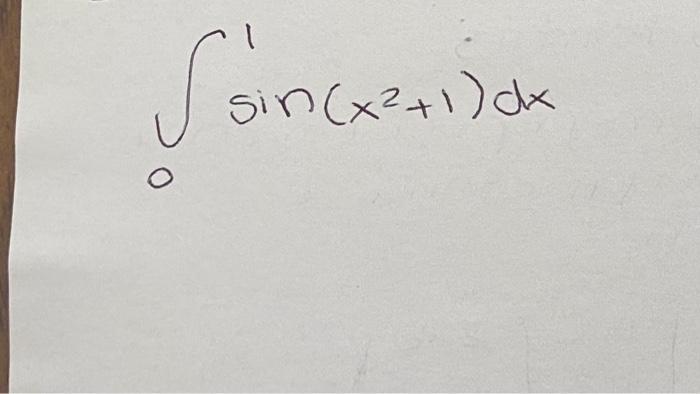 ∫₀¹ sin(x²+1)dx